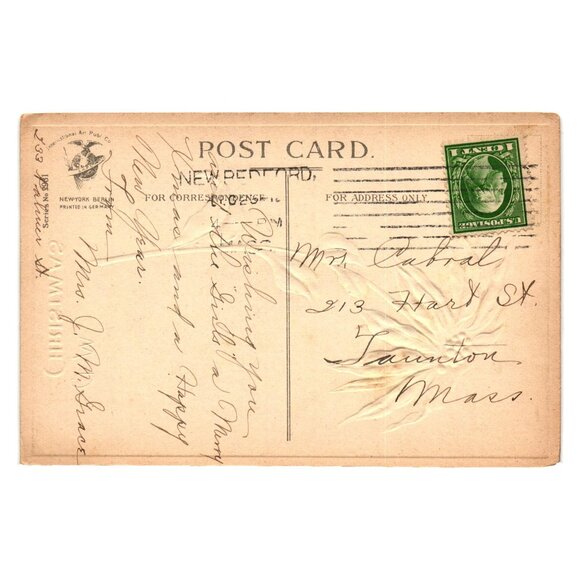 POST CARD.
International Art Publ. Co.
NEW YORK BERLIN
PRINTED IN GERMANY
NEW BEDFORD,
DEC
FOR CORRESPONDENCE
FOR ADDRESS ONLY.
1 CENT 1
U.S. POSTAGE
Mrs. Cabral
213 Hart St.
Taunton
Mass.
Wishing You
and the Girls a Merry
Xmas and a Happy
New Year.
From
Mrs. J. M. Grace
Palmer St.
Series No.
CHRISTMAS